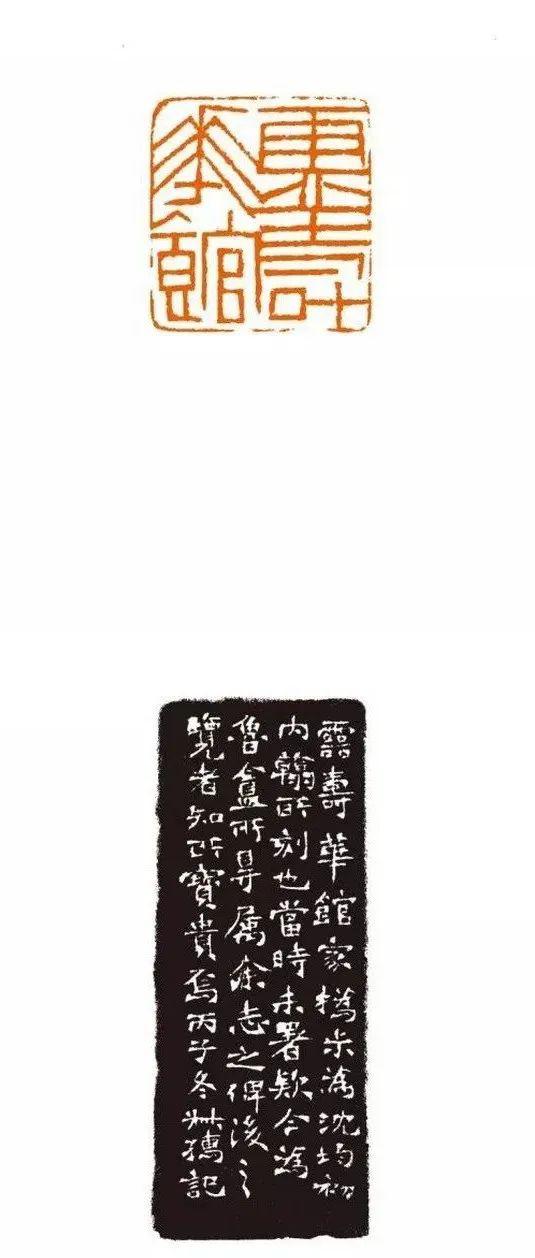 靈壽
華館
靈壽華館家撝叔為沈均初
內翰所刻也當時未署款今為
魯盦所得屬余志之俾後之
覽者知所寶貴焉丙子冬叔孺記